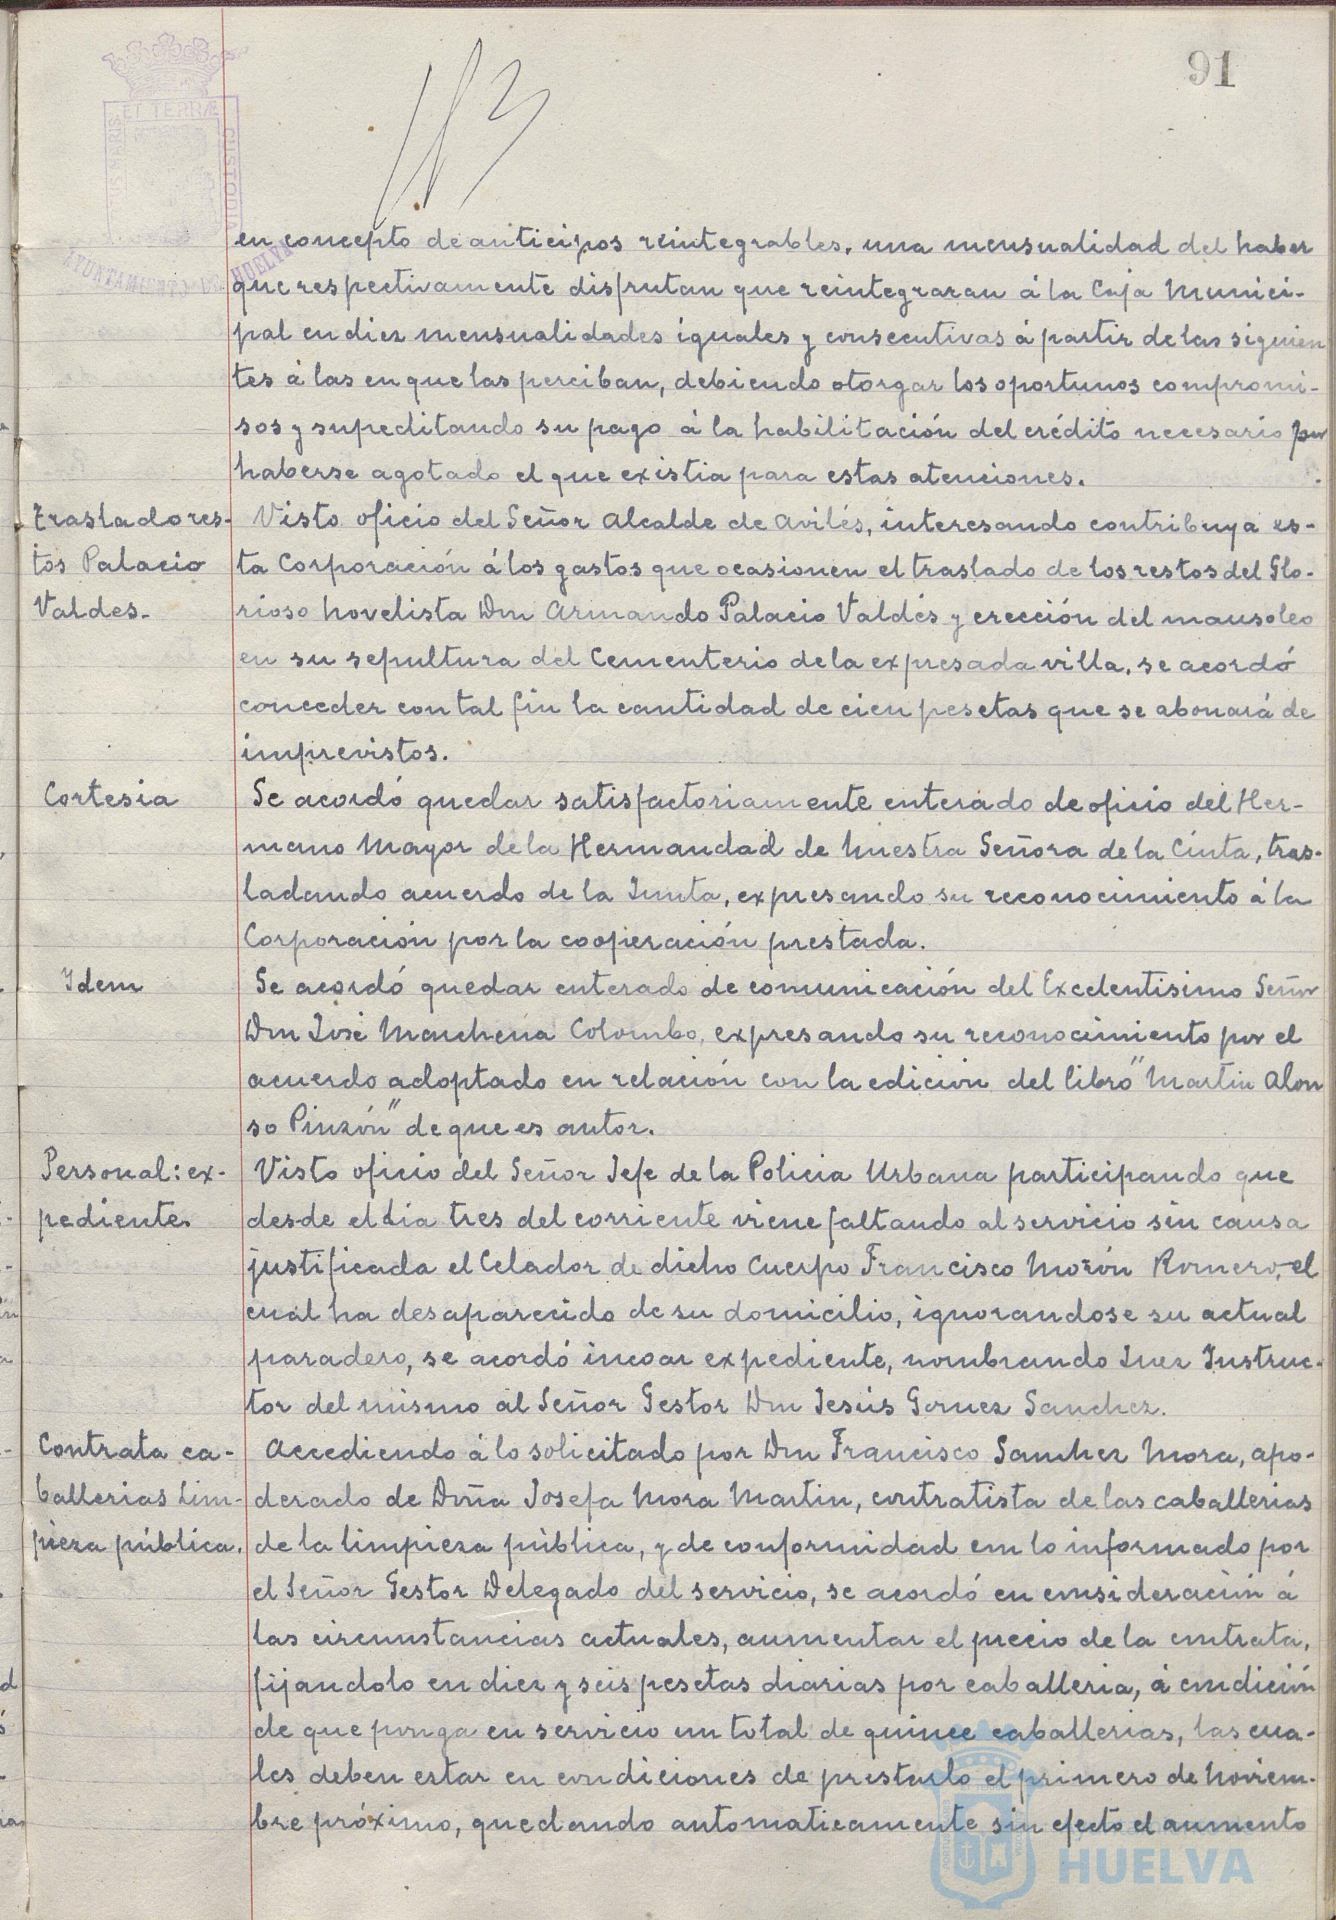 91
en concepto de anticipos reintegrables, una mensualidad del haber
que respectivamente disfrutan que reintegraran á la Caja Munici-
pal en diez mensualidades iguales y consecutivas á partir de las siguien
tes á las en que las perciban, debiendo otorgar los oportunos compromi-
sos y supeditando su pago á la habilitación del crédito necesario por
haberse agotado el que existia para estas atenciones.
Traslado res-
tos Palacio
Valdes.
Visto oficio del Señor Alcalde de Avilés, interesando contribuya es-
ta Corporación á los gastos que ocasionen el traslado de los restos del Glo-
rioso Novelista Don Armando Palacio Valdés y erección del mausoleo
en su sepultura del Cementerio de la expresada villa, se acordó
conceder con tal fin la cantidad de cien pesetas que se abonará de
imprevistos.
Cortesia
Se acordó quedar satisfactoriamente enterado de oficio del Her-
mano Mayor de la Hermandad de Nuestra Señora de la Cinta, tras-
ladando acuerdo de la Junta, expresando su reconocimiento á la
Corporación por la cooperación prestada.
Idem
Se acordó quedar enterado de comunicación del Excelentisimo Señor
Don José Marchena Colombo, expresando su reconocimiento por el
acuerdo adoptado en relación con la edicion del libro "Martin Alon
so Pinzón" de que es autor.
Personal: ex-
pediente.
Visto oficio del Señor Jefe de la Policia Urbana participando que
desde el dia tres del corriente viene faltando al servicio sin causa
justificada el Celador de dicho Cuerpo Francisco Morón Romero, el
cual ha desaparecido de su domicilio, ignorandose su actual
paradero, se acordó incoar expediente, nombrando Juez Instruc-
tor del mismo al Señor Gestor Don Jesús Gomez Sanchez.
Contrata ca-
ballerias Lim-
pieza pública.
Accediendo á lo solicitado por Don Francisco Sanchez Mora, apo-
derado de Doña Josefa Mora Martin, contratista de las caballerias
de la limpieza pública, y de conformidad con lo informado por
el Señor Gestor Delegado del servicio, se acordó en consideración á
las circunstancias actuales, aumentar el precio de la contrata,
fijandolo en diez y seis pesetas diarias por caballeria, á condición
de que ponga en servicio un total de quince caballerias, las cua-
les deben estar en condiciones de prestarlo el primero de Noviem-
bre próximo, quedando automaticamente sin efecto el aumento
AYUNTAMIENTO DE HUELVA
HUELVA